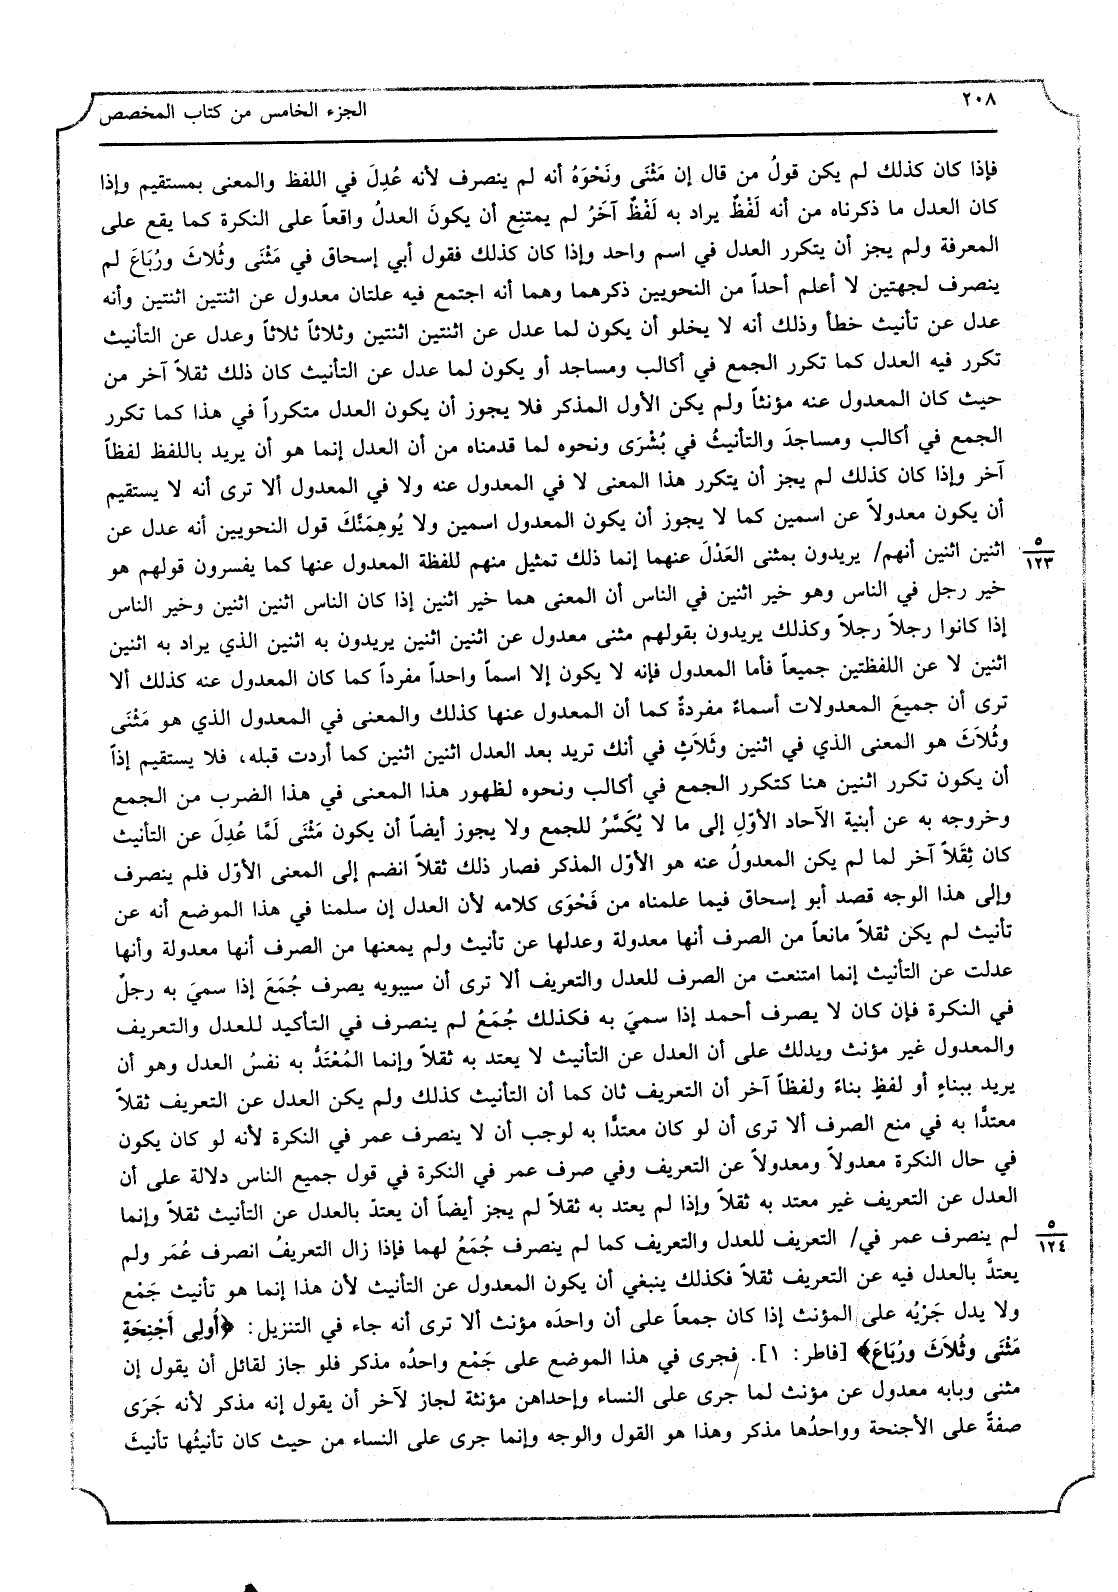 ٢٠٨
الجزء الخامس من كتاب المخصص
فإذا كان كذلك لم يكن قولُ من قال إن مَثْنَى ونَحْوَهُ أنه لم ينصرف لأنه عُدِلَ في اللفظ والمعنى بمستقيم وإذا
كان العدل ما ذكرناه من أنه لَفْظٌ يراد به لَفْظٌ آخَرُ لم يمتنِع أن يكونَ العدلُ واقعاً على النكرة كما يقع على
المعرفة ولم يجز أن يتكرر العدل في اسم واحد وإذا كان كذلك فقول أبي إسحاق في مَثْنَى وثُلاثَ ورُبَاعَ لم
ينصرف لجهتين لا أعلم أحداً من النحويين ذكرهما وهما أنه اجتمع فيه علتان معدول عن اثنتين اثنتين وأنه
عدل عن تأنيث خطأ وذلك أنه لا يخلو أن يكون لما عدل عن اثنتين اثنتين وثلاثاً ثلاثاً وعدل عن التأنيث
تكرر فيه العدل كما تكرر الجمع في أكالب ومساجد أو يكون لما عدل عن التأنيث كان ذلك ثقلاً آخر من
حيث كان المعدول عنه مؤنثاً ولم يكن الأول المذكر فلا يجوز أن يكون العدل متكرراً في هذا كما تكرر
الجمع في أكالب ومساجدَ والتأنيثُ في بُشْرَى ونحوه لما قدمناه من أن العدل إنما هو أن يريد باللفظ لفظاً
آخر وإذا كان كذلك لم يجز أن يتكرر هذا المعنى لا في المعدول عنه ولا في المعدول ألا ترى أنه لا يستقيم
أن يكون معدولاً عن اسمين كما لا يجوز أن يكون المعدول اسمين ولا يُوهِمَنَّكَ قول النحويين أنه عدل عن
٥
١٢٣
اثنين اثنين أنهم/ يريدون بمثنى العَدْلَ عنهما إنما ذلك تمثيل منهم للفظة المعدول عنها كما يفسرون قولهم هو
خير رجل في الناس وهو خير اثنين في الناس أن المعنى هما خير اثنين إذا كان الناس اثنين اثنين وخير الناس
إذا كانوا رجلاً رجلاً وكذلك يريدون بقولهم مثنى معدول عن اثنين اثنين يريدون به اثنين الذي يراد به اثنين
اثنين لا عن اللفظتين جميعاً فأما المعدول فإنه لا يكون إلا اسماً واحداً مفرداً كما كان المعدول عنه كذلك ألا
ترى أن جميعَ المعدولات أسماءٌ مفردةٌ كما أن المعدول عنها كذلك والمعنى في المعدول الذي هو مَثْنَى
وثُلاَثَ هو المعنى الذي في اثنين وثَلاَثٍ في أنك تريد بعد العدل اثنين اثنين كما أردت قبله، فلا يستقيم إذاً
أن يكون تكرر اثنين هنا كتكرر الجمع في أكالب ونحوه لظهور هذا المعنى في هذا الضرب من الجمع
وخروجه به عن أبنية الآحاد الأوّلِ إلى ما لا يُكَسَّرُ للجمع ولا يجوز أيضاً أن يكون مَثْنَى لَمَّا عُدِلَ عن التأنيث
كان ثِقَلاً آخر لما لم يكن المعدولُ عنه هو الأوّل المذكر فصار ذلك ثقلاً انضم إلى المعنى الأوّل فلم ينصرف
وإلى هذا الوجه قصد أبو إسحاق فيما علمناه من فَحْوَى كلامه لأن العدل إن سلمنا في هذا الموضع أنه عن
تأنيث لم يكن ثقلاً مانعاً من الصرف أنها معدولة وعدلها عن تأنيث ولم يمعنها من الصرف أنها معدولة وأنها
عدلت عن التأنيث إنما امتنعت من الصرف للعدل والتعريف ألا ترى أن سيبويه يصرف جُمَعَ إذا سميَ به رجلٌ
في النكرة فإن كان لا يصرف أحمد إذا سميَ به فكذلك جُمَعُ لم ينصرف في التأكيد للعدل والتعريف
والمعدول غير مؤنث ويدلك على أن العدل عن التأنيث لا يعتد به ثقلاً وإنما المُعْتَدُّ به نفسُ العدل وهو أن
يريد ببناءٍ أو لفظٍ بناءً ولفظاً آخر أن التعريف ثان كما أن التأنيث كذلك ولم يكن العدل عن التعريف ثقلاً
معتدًّا به في منع الصرف ألا ترى أن لو كان معتدًّا به لوجب أن لا ينصرف عمر في النكرة لأنه لو كان يكون
في حال النكرة معدولاً ومعدولاً عن التعريف وفي صرف عمر في النكرة في قول جميع الناس دلالة على أن
العدل عن التعريف غير معتد به ثقلاً وإذا لم يعتد به ثقلاً لم يجز أيضاً أن يعتدّ بالعدل عن التأنيث ثقلاً وإنما
٥
١٢٤
لم ينصرف عمر في/ التعريف للعدل والتعريف كما لم ينصرف جُمَعُ لهما فإذا زال التعريفُ انصرف عُمَر ولم
يعتدَّ بالعدل فيه عن التعريف ثقلاً فكذلك ينبغي أن يكون المعدول عن التأنيث لأن هذا إنما هو تأنيث جَمْع
ولا يدل جَرْيُه على المؤنث إذا كان جمعاً على أن واحدَه مؤنث ألا ترى أنه جاء في التنزيل: ﴿أُولِى أَجْنِحَةٍ
مَثْنَى وثُلاَثَ ورُبَاعَ﴾ [فاطر: ١]. فجرى في هذا الموضع على جَمْع واحدُه مذكر فلو جاز لقائل أن يقول إن
مثنى وبابه معدول عن مؤنث لما جرى على النساء وإحداهن مؤنثة لجاز لآخر أن يقول إنه مذكر لأنه جَرَى
صفةً على الأجنحة وواحدُها مذكر وهذا هو القول والوجه وإنما جرى على النساء من حيث كان تأنيثُها تأنيثَ